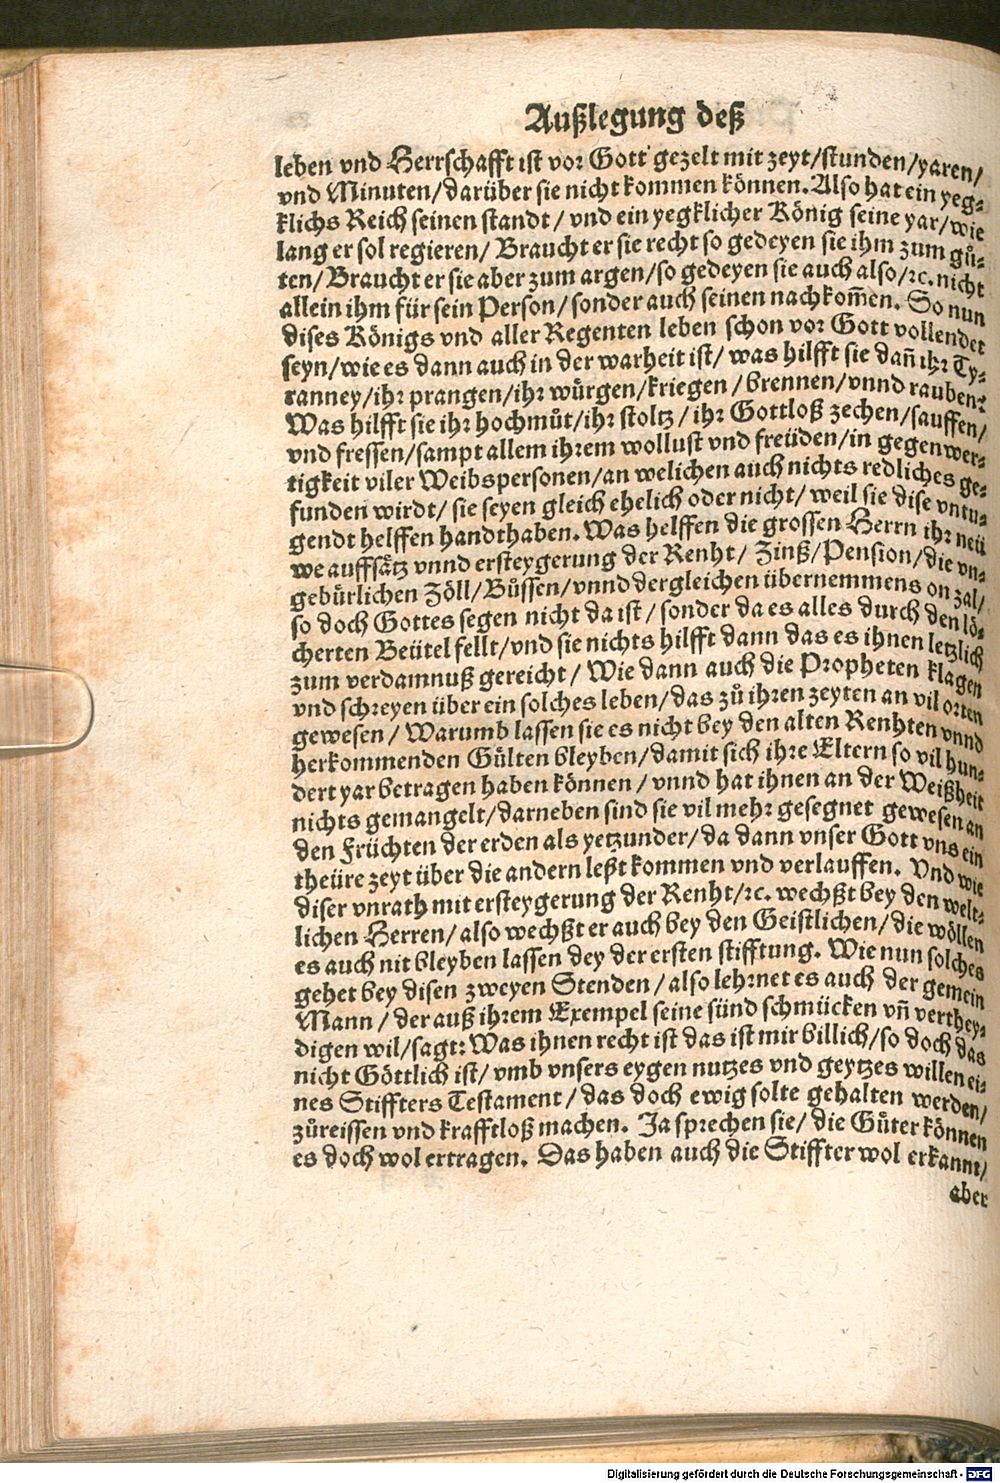 Außlegung deß
leben vnd Herrschafft ist vor Gott gezelt mit zeyt/stunden/yaren/
vnd Minuten/darüber sie nicht kommen können. Also hat ein yeg⸗
klichs Reich seinen standt/ vnd ein yegklicher König seine yar/wie
lang er sol regieren/ Braucht er sie recht so gedeyen sie ihm zum gů⸗
ten/ Braucht er sie aber zum argen/so gedeyen sie auch also/ꝛc. nicht
allein ihm für sein Person/sonder auch seinen nachkom̃en. So nun
dises Königs vnd aller Regenten leben schon vor Gott vollendet
seyn/wie es dann auch in der warheit ist/ was hilfft sie dañ ihr Ty⸗
ranney/ihr prangen/ihr würgen/kriegen/brennen/vnnd rauben?
Was hilfft sie ihr hochmůt/ihr stoltz/ ihr Gottloß zechen/sauffen/
vnd fressen/sampt allem ihrem wollust vnd freüden/in gegenwer⸗
tigkeit viler Weibspersonen/an welichen auch nichts redliches ge⸗
funden wirdt/ sie seyen gleich ehelich oder nicht/ weil sie dise vntu⸗
gendt helffen handthaben. Was helffen die grossen Herrn ihr neü
we auffsätz vnnd ersteygerung der Renht/ Zinß/Pension/die vn⸗
gebürlichen Zöll/Bůssen/vnnd dergleichen übernemmens on zal/
so doch Gottes segen nicht da ist/ sonder da es alles durch den lö⸗
cherten Beütel fellt/vnd sie nichts hilfft dann das es ihnen letzlich
zum verdamnuß gereicht/ Wie dann auch die Propheten klagen
vnd schreyen über ein solches leben/das zů ihren zeyten an vil orten
gewesen/ Warumb lassen sie es nicht bey den alten Renhten vnnd
herkommenden Gülten bleyben/damit sich ihre Eltern so vil hun⸗
dert yar betragen haben können/ vnnd hat ihnen an der Weißheit
nichts gemangelt/darneben sind sie vil mehr gesegnet gewesen an
den Früchten der erden als yetzunder/da dann vnser Gott vns ein
theüre zeyt über die andern leßt kommen vnd verlauffen. Vnd wie
diser vnrath mit ersteygerung der Renht/ꝛc. wechßt bey den welt⸗
lichen Herren/also wechßt er auch bey den Geistlichen/die wöllen
es auch nit bleyben lassen dey der ersten stifftung. Wie nun solches
gehet bey disen zweyen Stenden/also lehrnet es auch der gemein
Mann/ der auß ihrem Exempel seine sünd schmücken vñ verthey⸗
digen wil/sagt: Was ihnen recht ist das ist mir billich/so doch das
nicht Göttlich ist/ vmb vnsers eygen nutzes vnd geytzes willen ei⸗
nes Stiffters Testament/das doch ewig solte gehalten werden/
zůreissen vnd krafftloß machen. Ja sprechen sie/ die Gůter können
es doch wol ertragen. Das haben auch die Stiffter wol erkannt/
aber
Digitalisierung gefördert durch die Deutsche Forschungsgemeinschaft - DFG